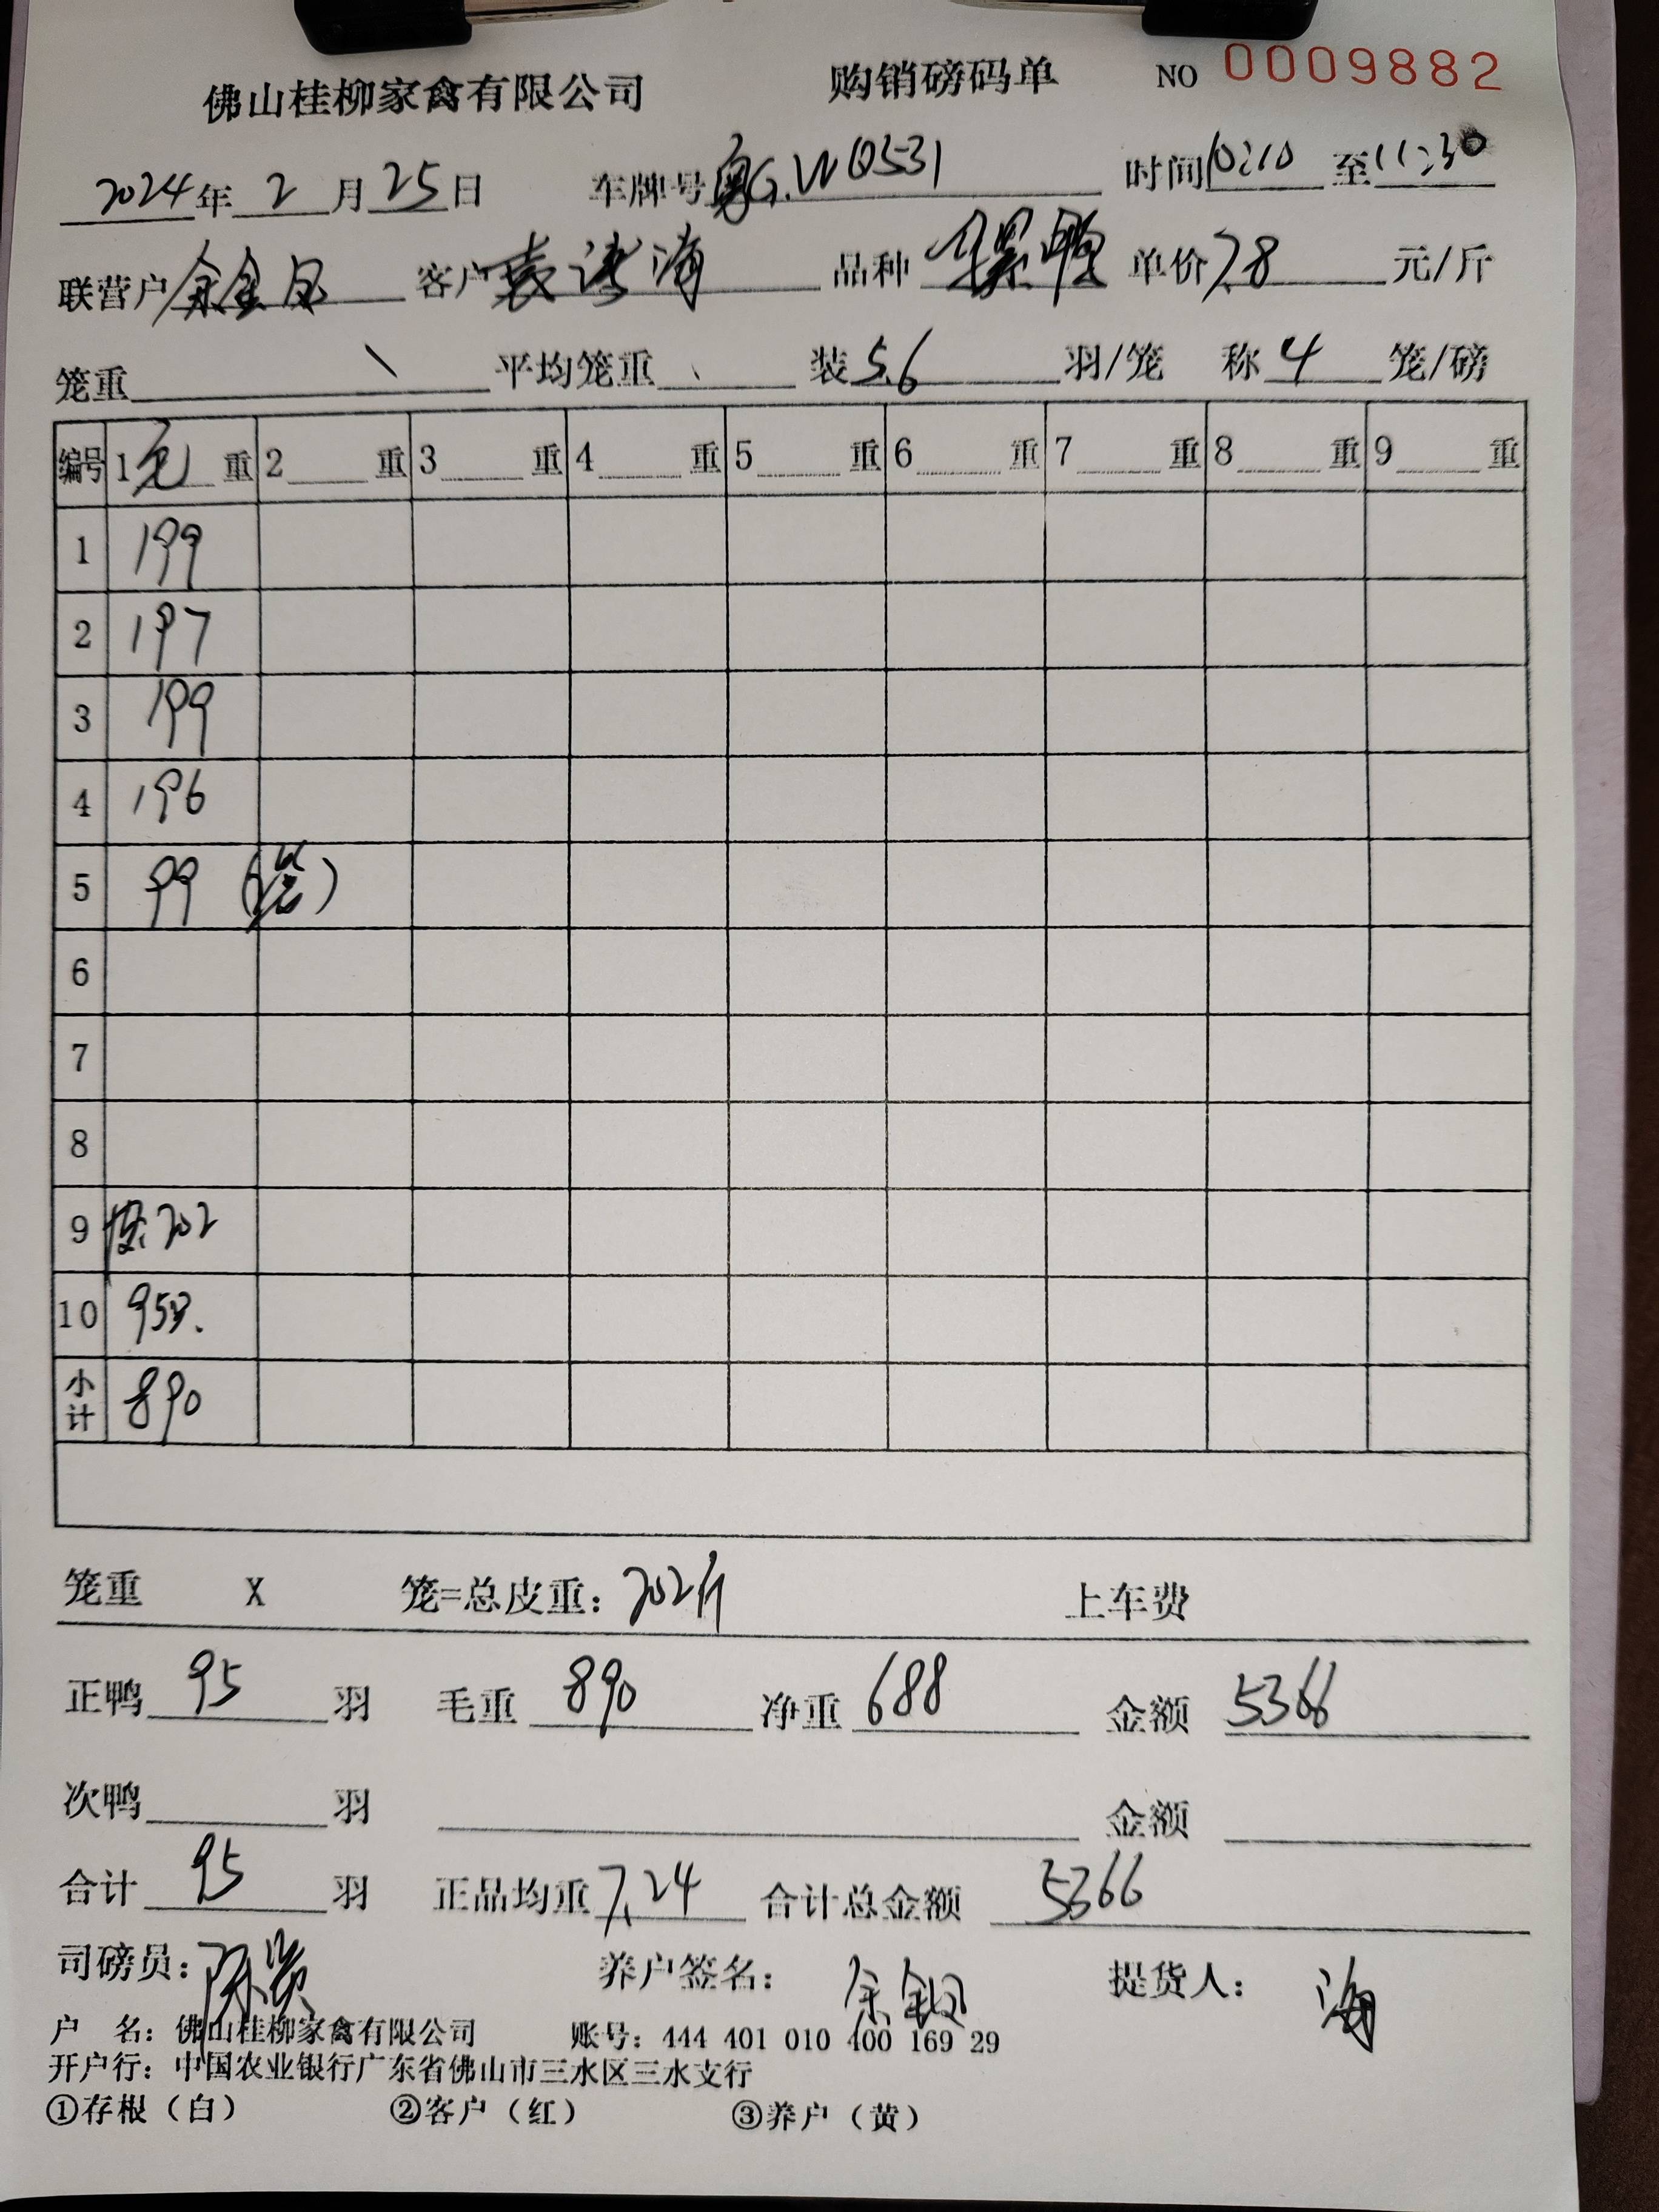 佛山桂柳家禽有限公司 购销磅码单 NO 0009882
2024年 2 月 25 日 车牌号 粤G.WQ531 时间 10:10 至 11:30
联营户 余金凤 客户 袁洪海 品种 鸭 单价 7.8 元/斤
笼重 \ 平均笼重 \ 装 5.6 羽/笼 称 4 笼/磅
编号 1毛重 2 重 3 重 4 重 5 重 6 重 7 重 8 重 9 重
1 199
2 197
3 199
4 196
5 99
6
7
8
9 皮:202
10 95只.
小计 890
笼重 X 笼=总皮重: 202斤 上车费
正鸭 95 羽 毛重 890 净重 688 金额 5366
次鸭 羽 金额
合计 95 羽 正品均重 7.24 合计总金额 5366
司磅员: 养户签名: 余金凤 提货人: 海
户 名: 佛山桂柳家禽有限公司 账号: 444 401 010 400 169 29
开户行: 中国农业银行广东省佛山市三水区三水支行
①存根（白） ②客户（红） ③养户（黄）